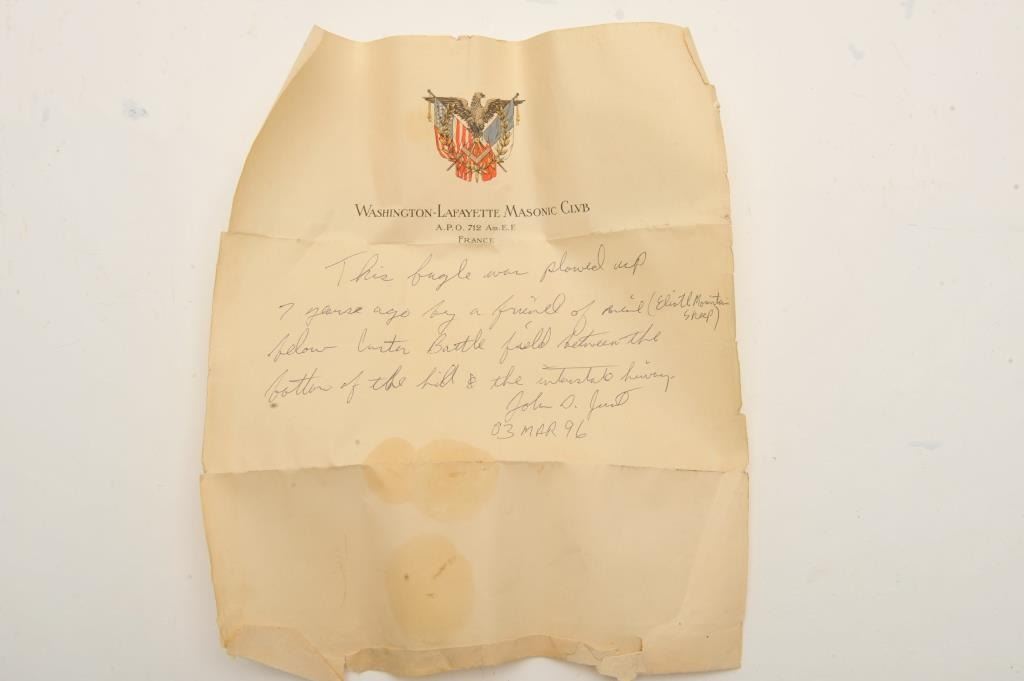 WASHINGTON-LAFAYETTE MASONIC CLVB
A.P.O. 712 AM. E. F.
FRANCE
This bugle was plowed up
7 years ago by a friend of mine (
Mountain
Sheep)
below Custer Battle field between the
bottom of the hill & the interstate
John D.
03 MAR 96